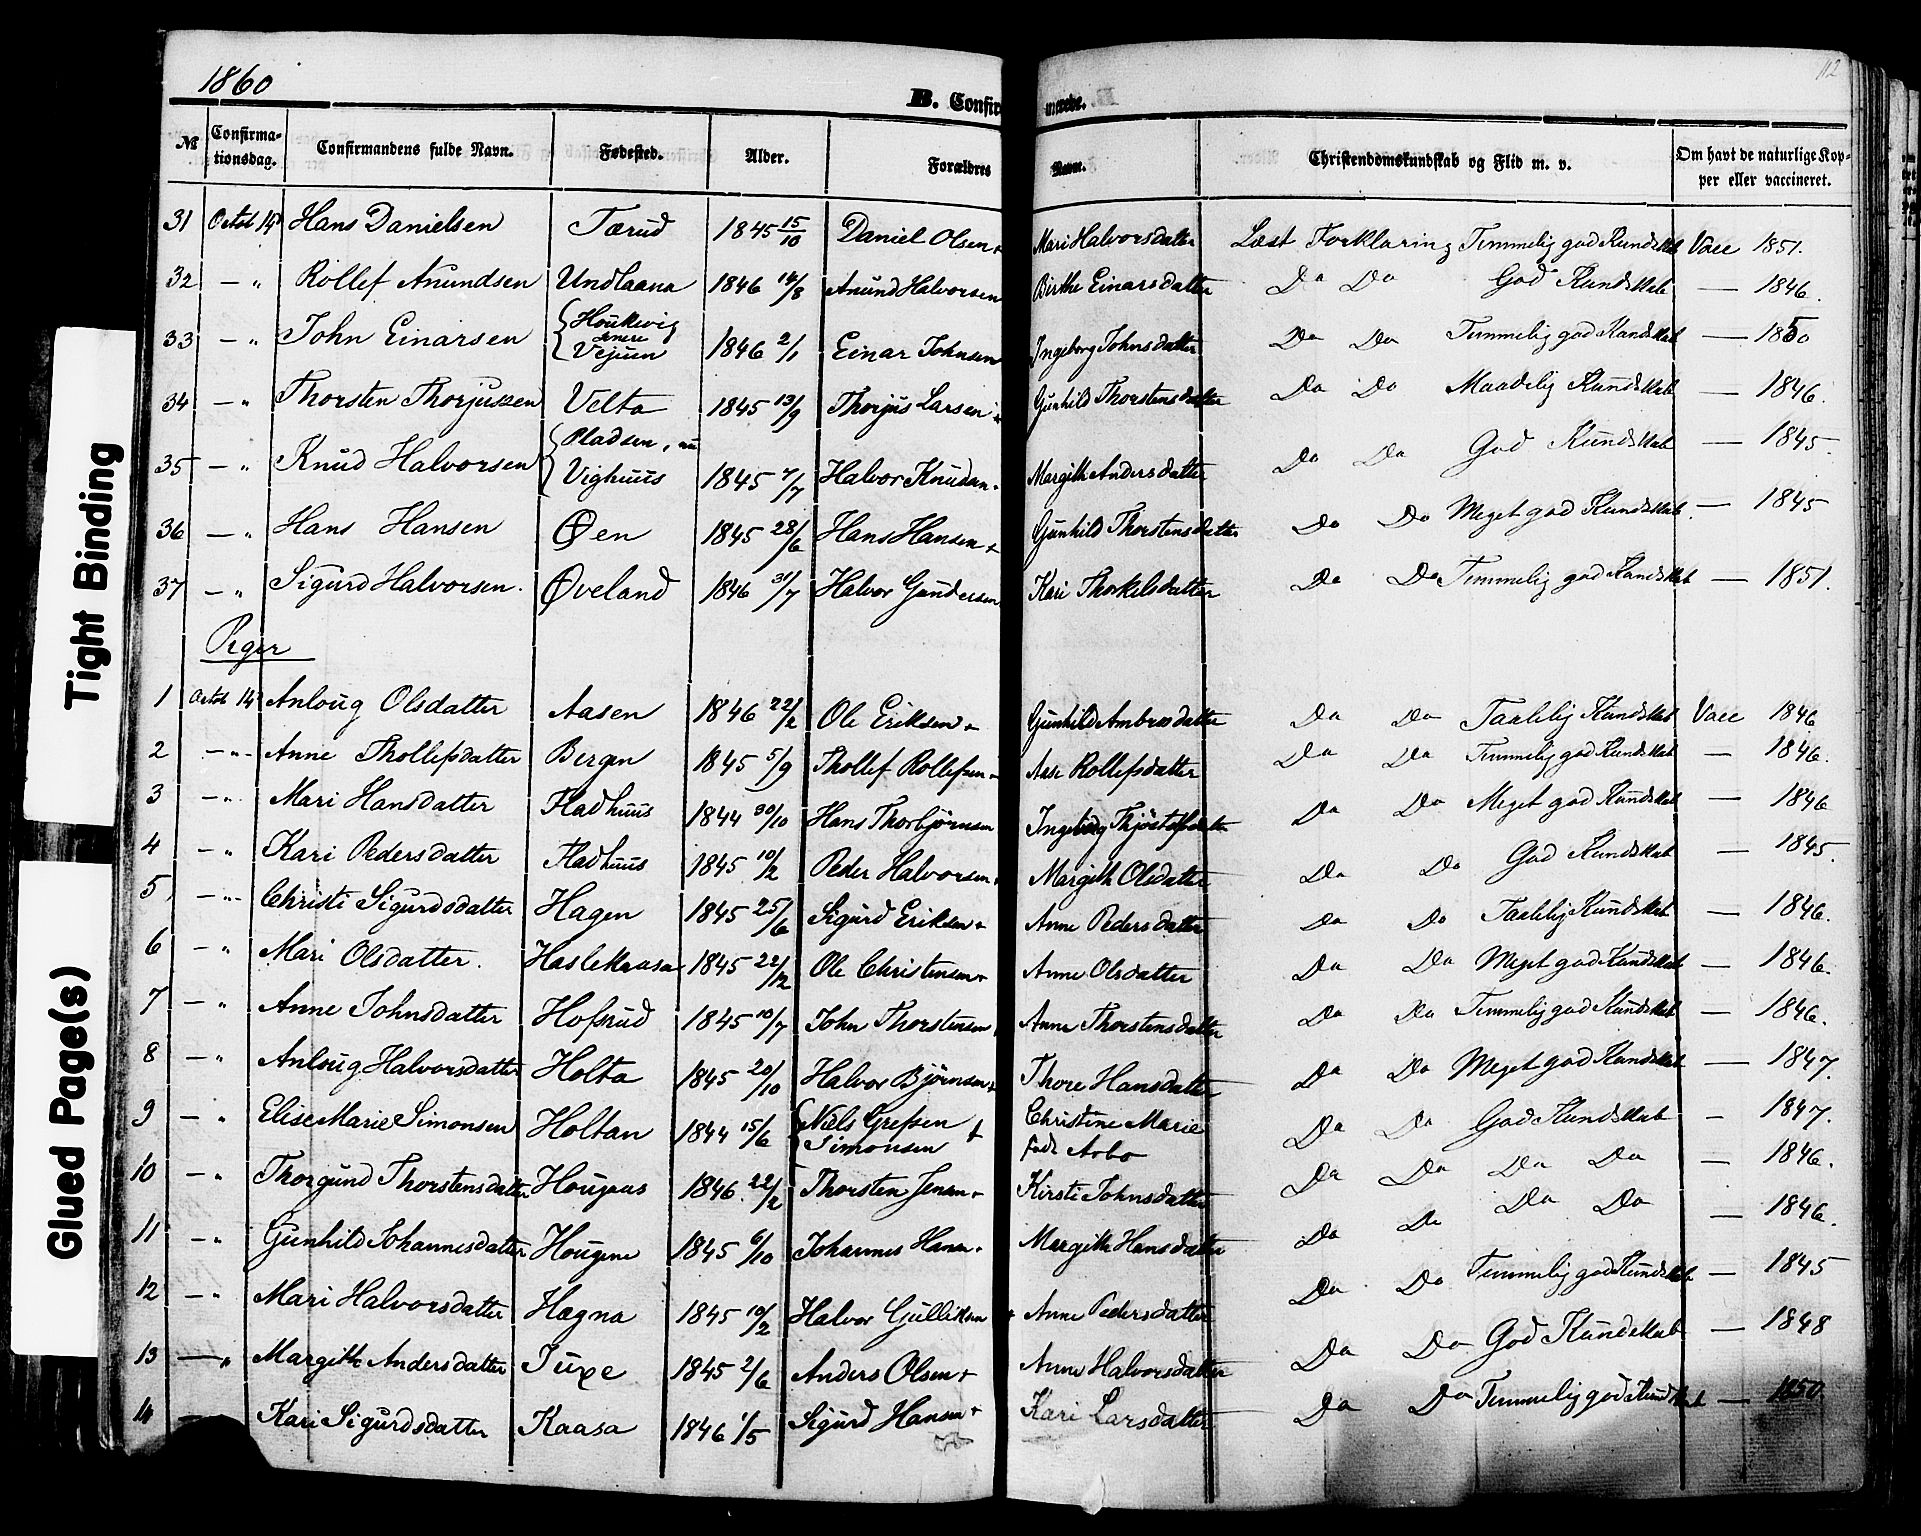 1860
112
B. Confirmerede.
№ Confirmationsdag. Confirmandens fulde Navn. Fødested. Alder. Forældres Navn. Christendomskundskab og Flid m. v. Om havt de naturlige Kopper eller vaccineret.
31 Octob 14 Hans Danielsen Tærud 1845 15/10 Daniel Olsen + Mari Halvorsdatter Læst Forklaring Temmelig god Kundskab Vacc 1851.
32 — " Rollef Anundsen Undlaana 1846 14/8 Anund Halvorsen Birthe Einarsdatter Do Do God Kundskab — 1846.
33 — " John Einarsen { Houkevig senere Vejuen 1846 2/1 Einar Johnsen Ingeborg Johnsdatter Do Do Temmelig god Kundskab — 1850
34 — " Thorsten Thorjussen Velta 1845 13/9 Thorjus Larsen + Gunhild Thorstensdatter Do Do Maadelig Kundskab — 1846.
35 — " Knud Halvorsen { Pladsen, nu Vighuus 1845 7/7 Halvor Knudsen + Margith Andersdatter Do Do God Kundskab — 1845.
36 — " Hans Hansen Øen 1845 28/6 Hans Hansen + Gunhild Thorstensdatter Do Do Meget god Kundskab. — 1845
37 — " Sigurd Halvorsen. Øveland 1846 31/7 Halvor Gundersen Kari Thorkelsdatter Do Do Temmelig god Kundskab — 1851.
Piger
1 Octob 14 Anloug Olsdatter Aasen 1846 22/2 Ole Eriksen + Gunhild Ambrosdatter Do Do Taalelig Kundskab Vacc 1846
2 — " Anne Thollefsdatter Bergen 1845 5/9 Thollef Rollefsen + Aase Rollefsdatter Do Do Temmelig god Kundskab — 1846.
3 — " Mari Hansdatter Fladhuus 1844 30/10 Hans Thorbjørnsen Ingeborg Thjøstolfsdatter Do Do Meget god Kundskab — 1846
4 — " Kari Pedersdatter Fladhuus 1845 10/2 Peder Halvorsen + Margith Olsdatter Do Do God Kundskab — 1845.
5 — " Christi Sigurdsdatter Hagen 1845 25/6 Sigurd Eriksen + Anne Pedersdatter Do Do Taalelig Kundskab — 1846.
6 — " Mari Olsdatter. Haslekaasa 1845 22/12 Ole Christensen + Anne Olsdatter Do Do Meget god Kundskab — 1846.
7 — " Anne Johnsdatter Hofsrud 1845 10/7 John Thorstensen + Anne Thorstensdatter Do Do Temmelig god Kundskab — 1846.
8 — " Anloug Halvorsdatter Holta 1845 20/10 Halvor Bjørnsen + Thore Hansdatter Do Do Meget god Kundskab — 1847.
9 — " Elise Marie Simonsen Holtan 1844 15/6 { Niels Grefsen Simonsen + Christine Marie født Arbo Do Do God Kundskab — 1847.
10 — " Thorgund Thorstensdatter Hougaas 1846. 22/2 Thorsten Jensen + Kirsti Johnsdatter Do Do Do Do — 1846.
11 — " Gunhild Johannesdatter Hougene 1845 6/10 Johannes Hansen + Margith Hansdatter Do Do Do Do — 1846.
12 — " Mari Halvorsdatter Hægna 1845 10/2 Halvor Gulliksen + Anne Pedersdatter Do Do Temmelig god Kundskab — 1845
13 — " Margith Andersdatter Juxe 1845 2/6 Anders Olsen + Anne Halvorsdatter Do Do God Kundskab — 1848
14 — Kari Sigurdsdatter Kaasa 1846 1/5 Sigurd Hansen + Kari Larsdatter Do Do Temmelig god Kundskab — 1850.
Tight Binding
Glued Page(s)